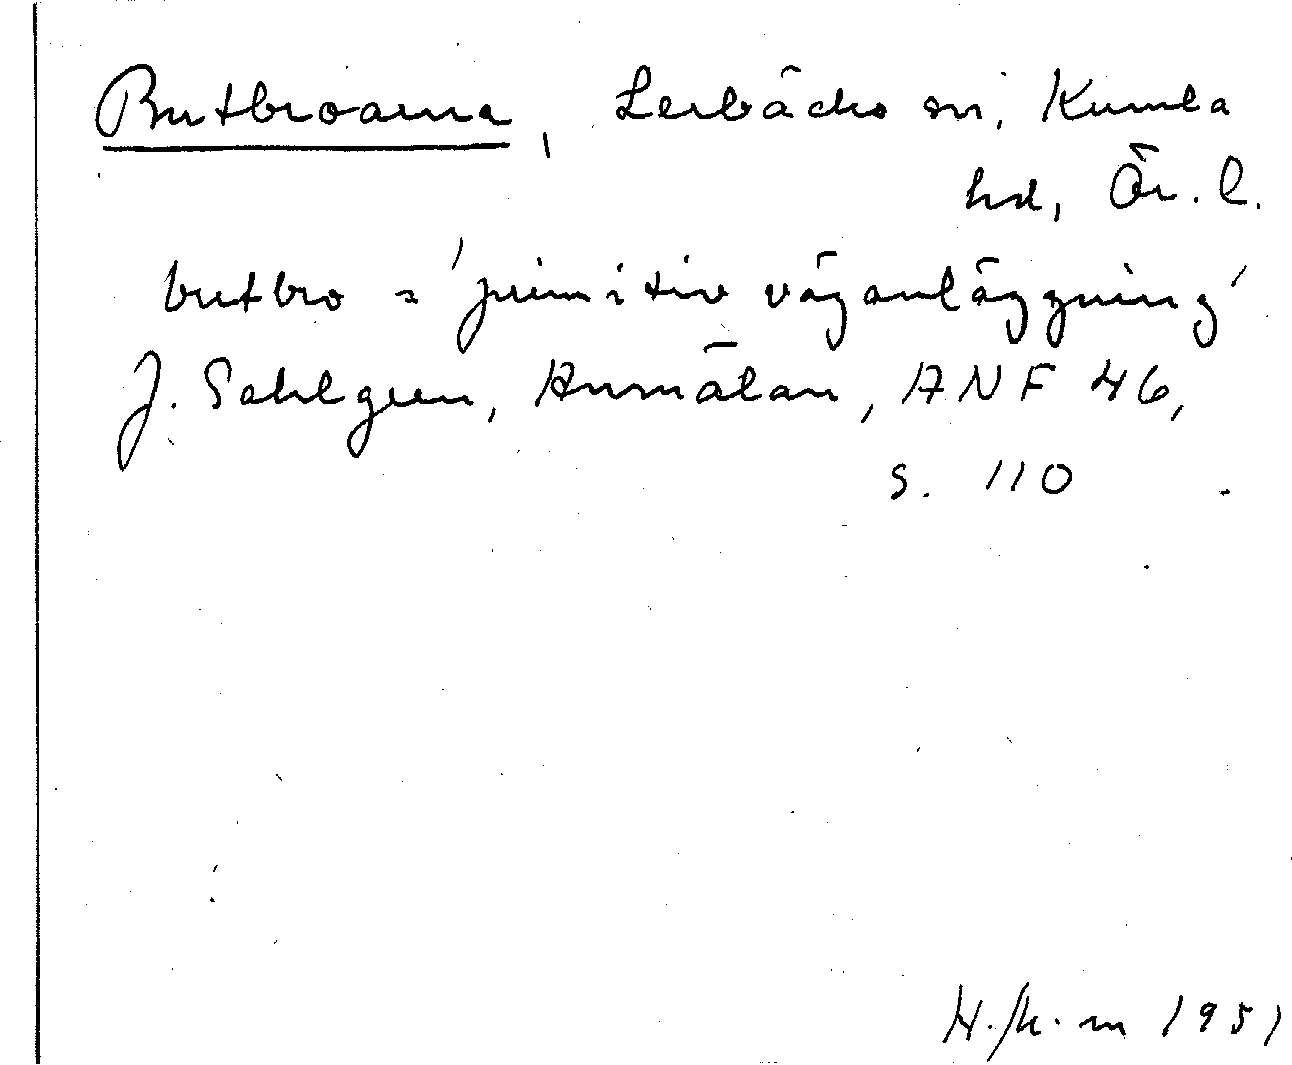 Butbroarna, Lerbäcks sn, Kumla
hd, Ör. l.
butbro = 'primitiv väganläggning'
J. Sahlgren, Anmälan, ANF 46,
s. 110
1951